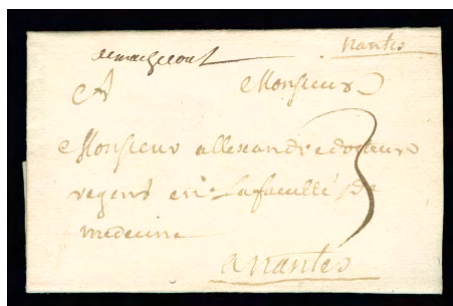 demachecoul
nantes
A Monsieur
Monsieur allexandre docteur
regens en la faculté de
medecine
3
a nantes